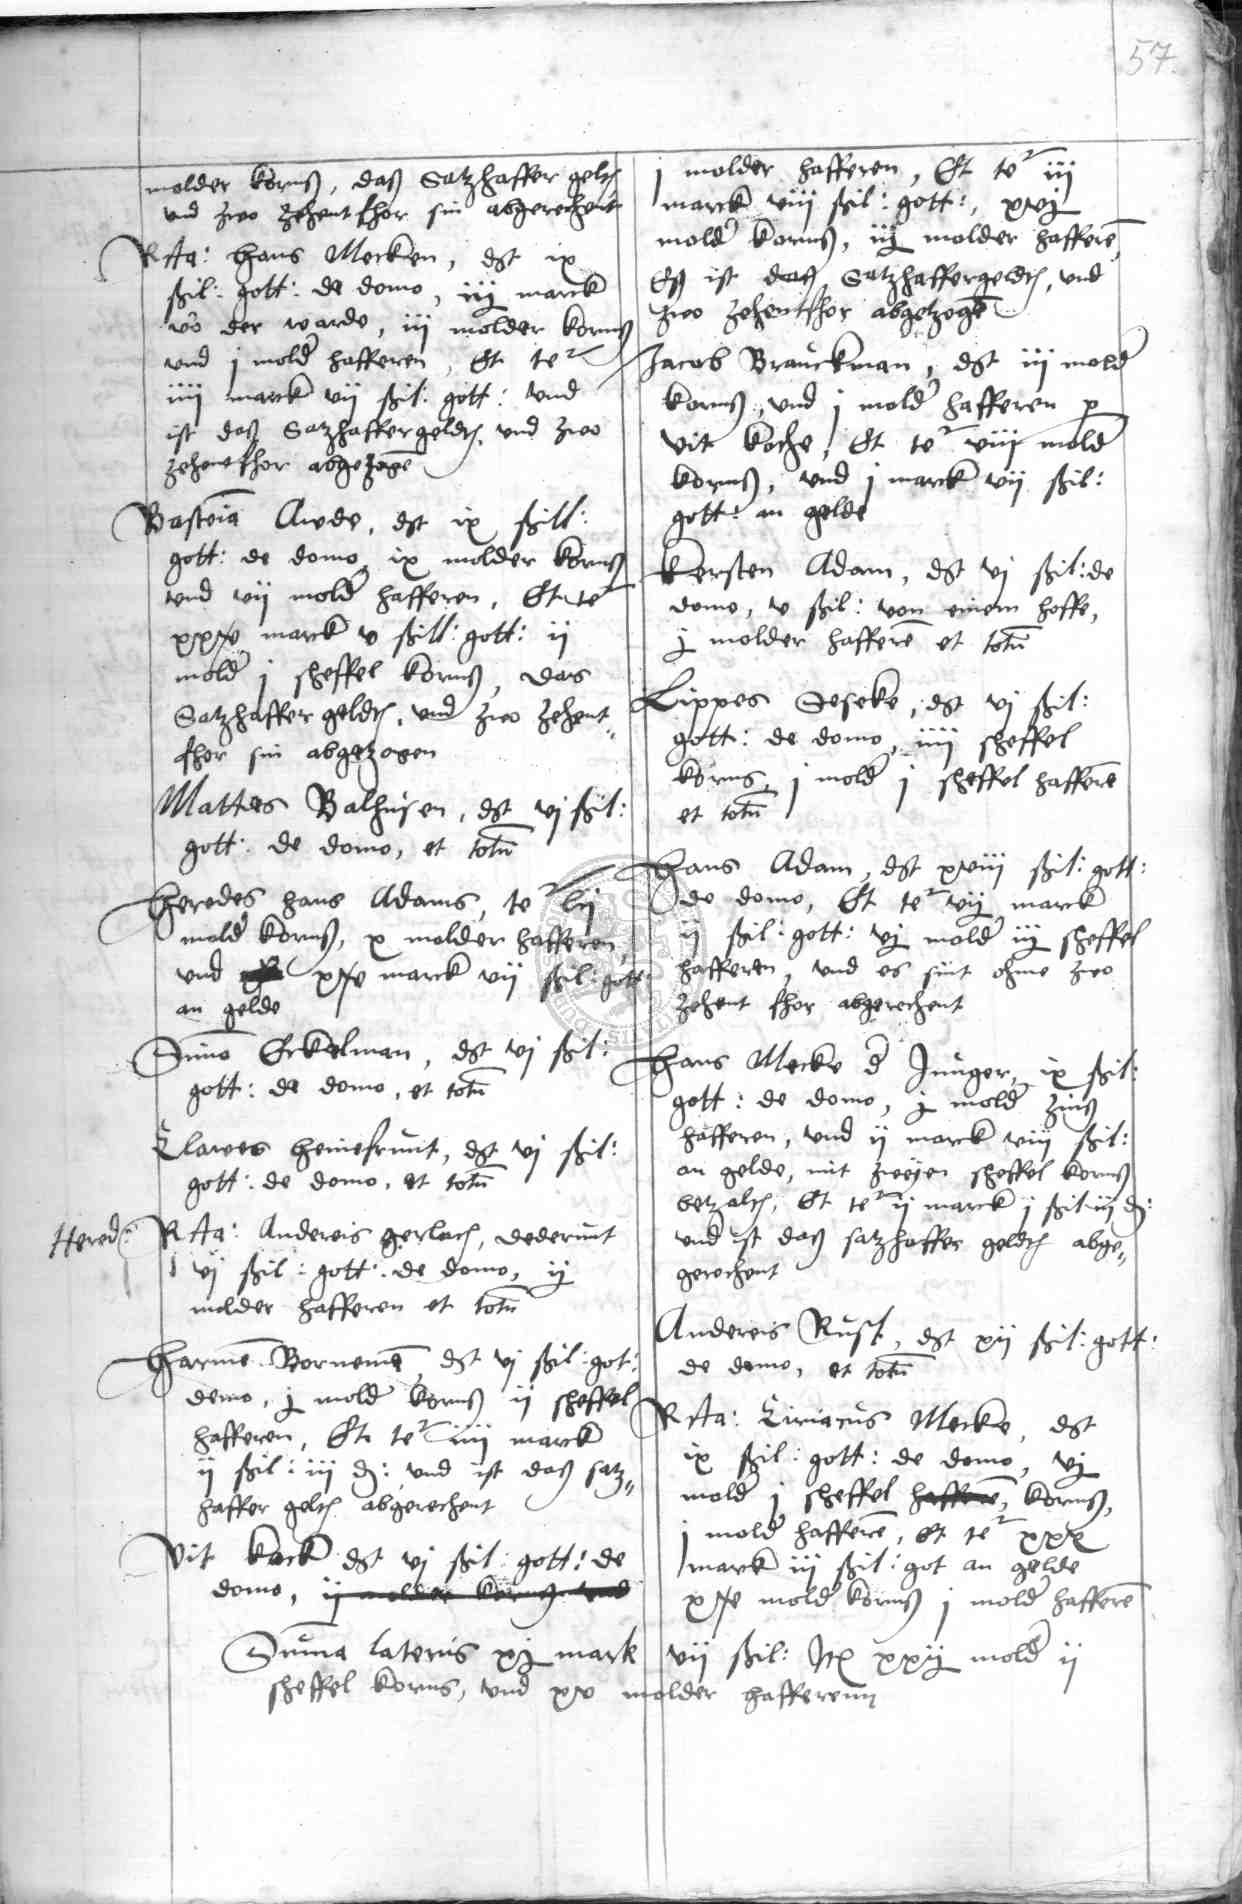 57
molder korns, das Satzhaffer geldt
und zwo zehent fhor sin abgerechent
Rta: Hans Mecken, dt ix
ßil: gott: de domo, iij marck
vo der warde, iij molder korns
und j mold hafferen, Et te
iiij marck vij ßil: gott: und
ist das Satzhaffergeldt, und zwo
zehent fhor abgezoge
Bastia Avde, dt ix ßill:
gott: de domo, ix molder korns
und vij mold hafferen, Et te
marck v ßill: gott: ij
mold j sheffel korns, das
Satzhaffer geldt, und zwo zehent„
fhor sin abgezogen
Mattes Balhusen, dt vj ßil:
gott: de domo, et totu
Heredes Hans Adams, te
mold korns, x molder hafferen,
und marck vij ßil: gott:
an gelde
Simo Erkelman, dt vj ßil:
gott: de domo, et totu
Clawes Heinefrunt, dt vj ßil:
gott: de domo, et totu
Hered: Rta: Andereis gerlach, dederunt
vj ßil: gott: de domo, ij
molder hafferen et totu
Harme Borneme dt vj ßil: got:
domo, j mold korns ij sheffel
hafferen, Et te iiij marck
ij ßil: iij d: und ist das satz„
haffer geldt abgerechent
Vit Kock dt vj ßil: gott: de
domo, ij molder korns und
j molder hafferen, Et te iij
marck viij ßil: gott:, xvj
mold korns, iij molder haffere,
Es ist das Satzhaffergeldt, und
zwo zehentfhor abgetzoge
Jacob Brauckman, dt iij mold
korns, und j mold hafferen p
Vit Koche, Et te viij mold
korns, und j marck vij ßil:
gott: an gelde
Kersten Adam, dt vj ßil: de
domo, v ßil: von einem hoffe,
j molder haffere et totu
Lippes Deseke, dt vj ßil:
gott: de domo, iiij sheffel
korns, j mold j sheffel haffere
et totu
Hans Adam, dt xviij ßil: gott:
de domo, Et te vij marck
ij ßil: gott: vj mold iij sheffel
hafferen, und es sint ohme zwo
zehent fhor abgerechent
Hans Mecke d Junger, ix ßil:
gott: de domo, j mold zins
hafferen, und ij marck viij ßil:
an gelde, mit zweyen sheffel korns
betzalt, Et te ij marck j ßil iij d:
und ist das satzhaffer geldt abge„
gerechent
Andereis Rust, dt xij ßil: gott:
de domo, et totu
Rta: Ciriacus Mecke, dt
ix ßil: gott: de domo, vj
mold j sheffel haffere, korns,
j mold haffere, et te xxx
marck iij ßil: got an gelde
mold korns j mold haffere
Suma lateris xj mark vij ßil: It xxij mold ij
sheffel korns, und xv molder hafferenn